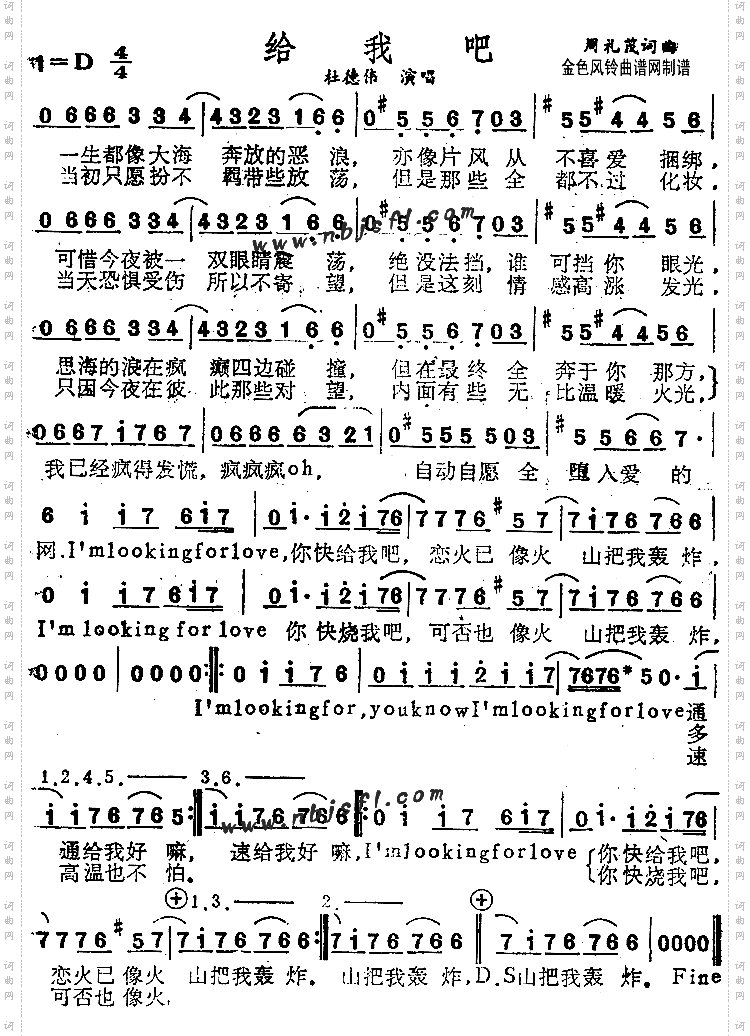 给我吧
1=D 4/4
周礼茂词曲
杜德伟 演唱
金色风铃曲谱网制谱
0666334 | 4323166 | 0#556703 | #55#4456
一生都像大海 奔放的恶浪， 亦像片风从 不喜爱捆绑，
当初只愿扮不 羁带些放荡， 但是那些全 都不过化妆．
0666334 | 4323166 | 0#556703 | #55#4456
www.nbjcfl.com
可惜今夜被一 双眼睛震荡， 绝没法挡，谁 可挡你眼光，
当天恐惧受伤 所以不寄望， 但是这刻情 感高涨发光，
0666334 | 4323166 | 0#556703 | #55#4456
思海的浪在疯 癫四边碰撞， 但在最终全 奔于你那方，
只因今夜在彼 此那些对望， 内面有些无 比温暖火光，
0667i767 | 06666321 | 0#555503 | #55667·
我已经疯得发慌，疯疯疯oh， 自动自愿全 堕入爱的
6 i i7 6i7 | 0i·i2i76 | 7776#57 | 7i76766
网．I'mlookingforlove，你快给我吧， 恋火已像火 山把我轰炸，
0i i76i7 | 0i·i2i76 | 7776#57 | 7i76766
I'mlookingforlove 你快烧我吧，可否也像火 山把我轰炸，
0000 | 0000 :‖: 0i i76 | 0i i i2i i7 | 7676#50·i
I'mlookingfor,youknowI'mlookingforlove通
多
速
1,2,4,5.—— 3,6.——
i i76765 :‖: i i76766 :‖ 0i i7 6i7 | 0i·i2i76
www.nbjcfl.com
通给我好嘛， 速给我好嘛，I'mlookingforlove 你快给我吧，
高温也不怕． 你快烧我吧，
1,3.—— 2.——
7776#57 | 7i76766 :‖ 7i76766 ‖ 7i76766 | 0000 ‖
恋火已像火 山把我轰炸．山把我轰炸，D.S山把我轰炸．Fine
可否也像火，
词曲网